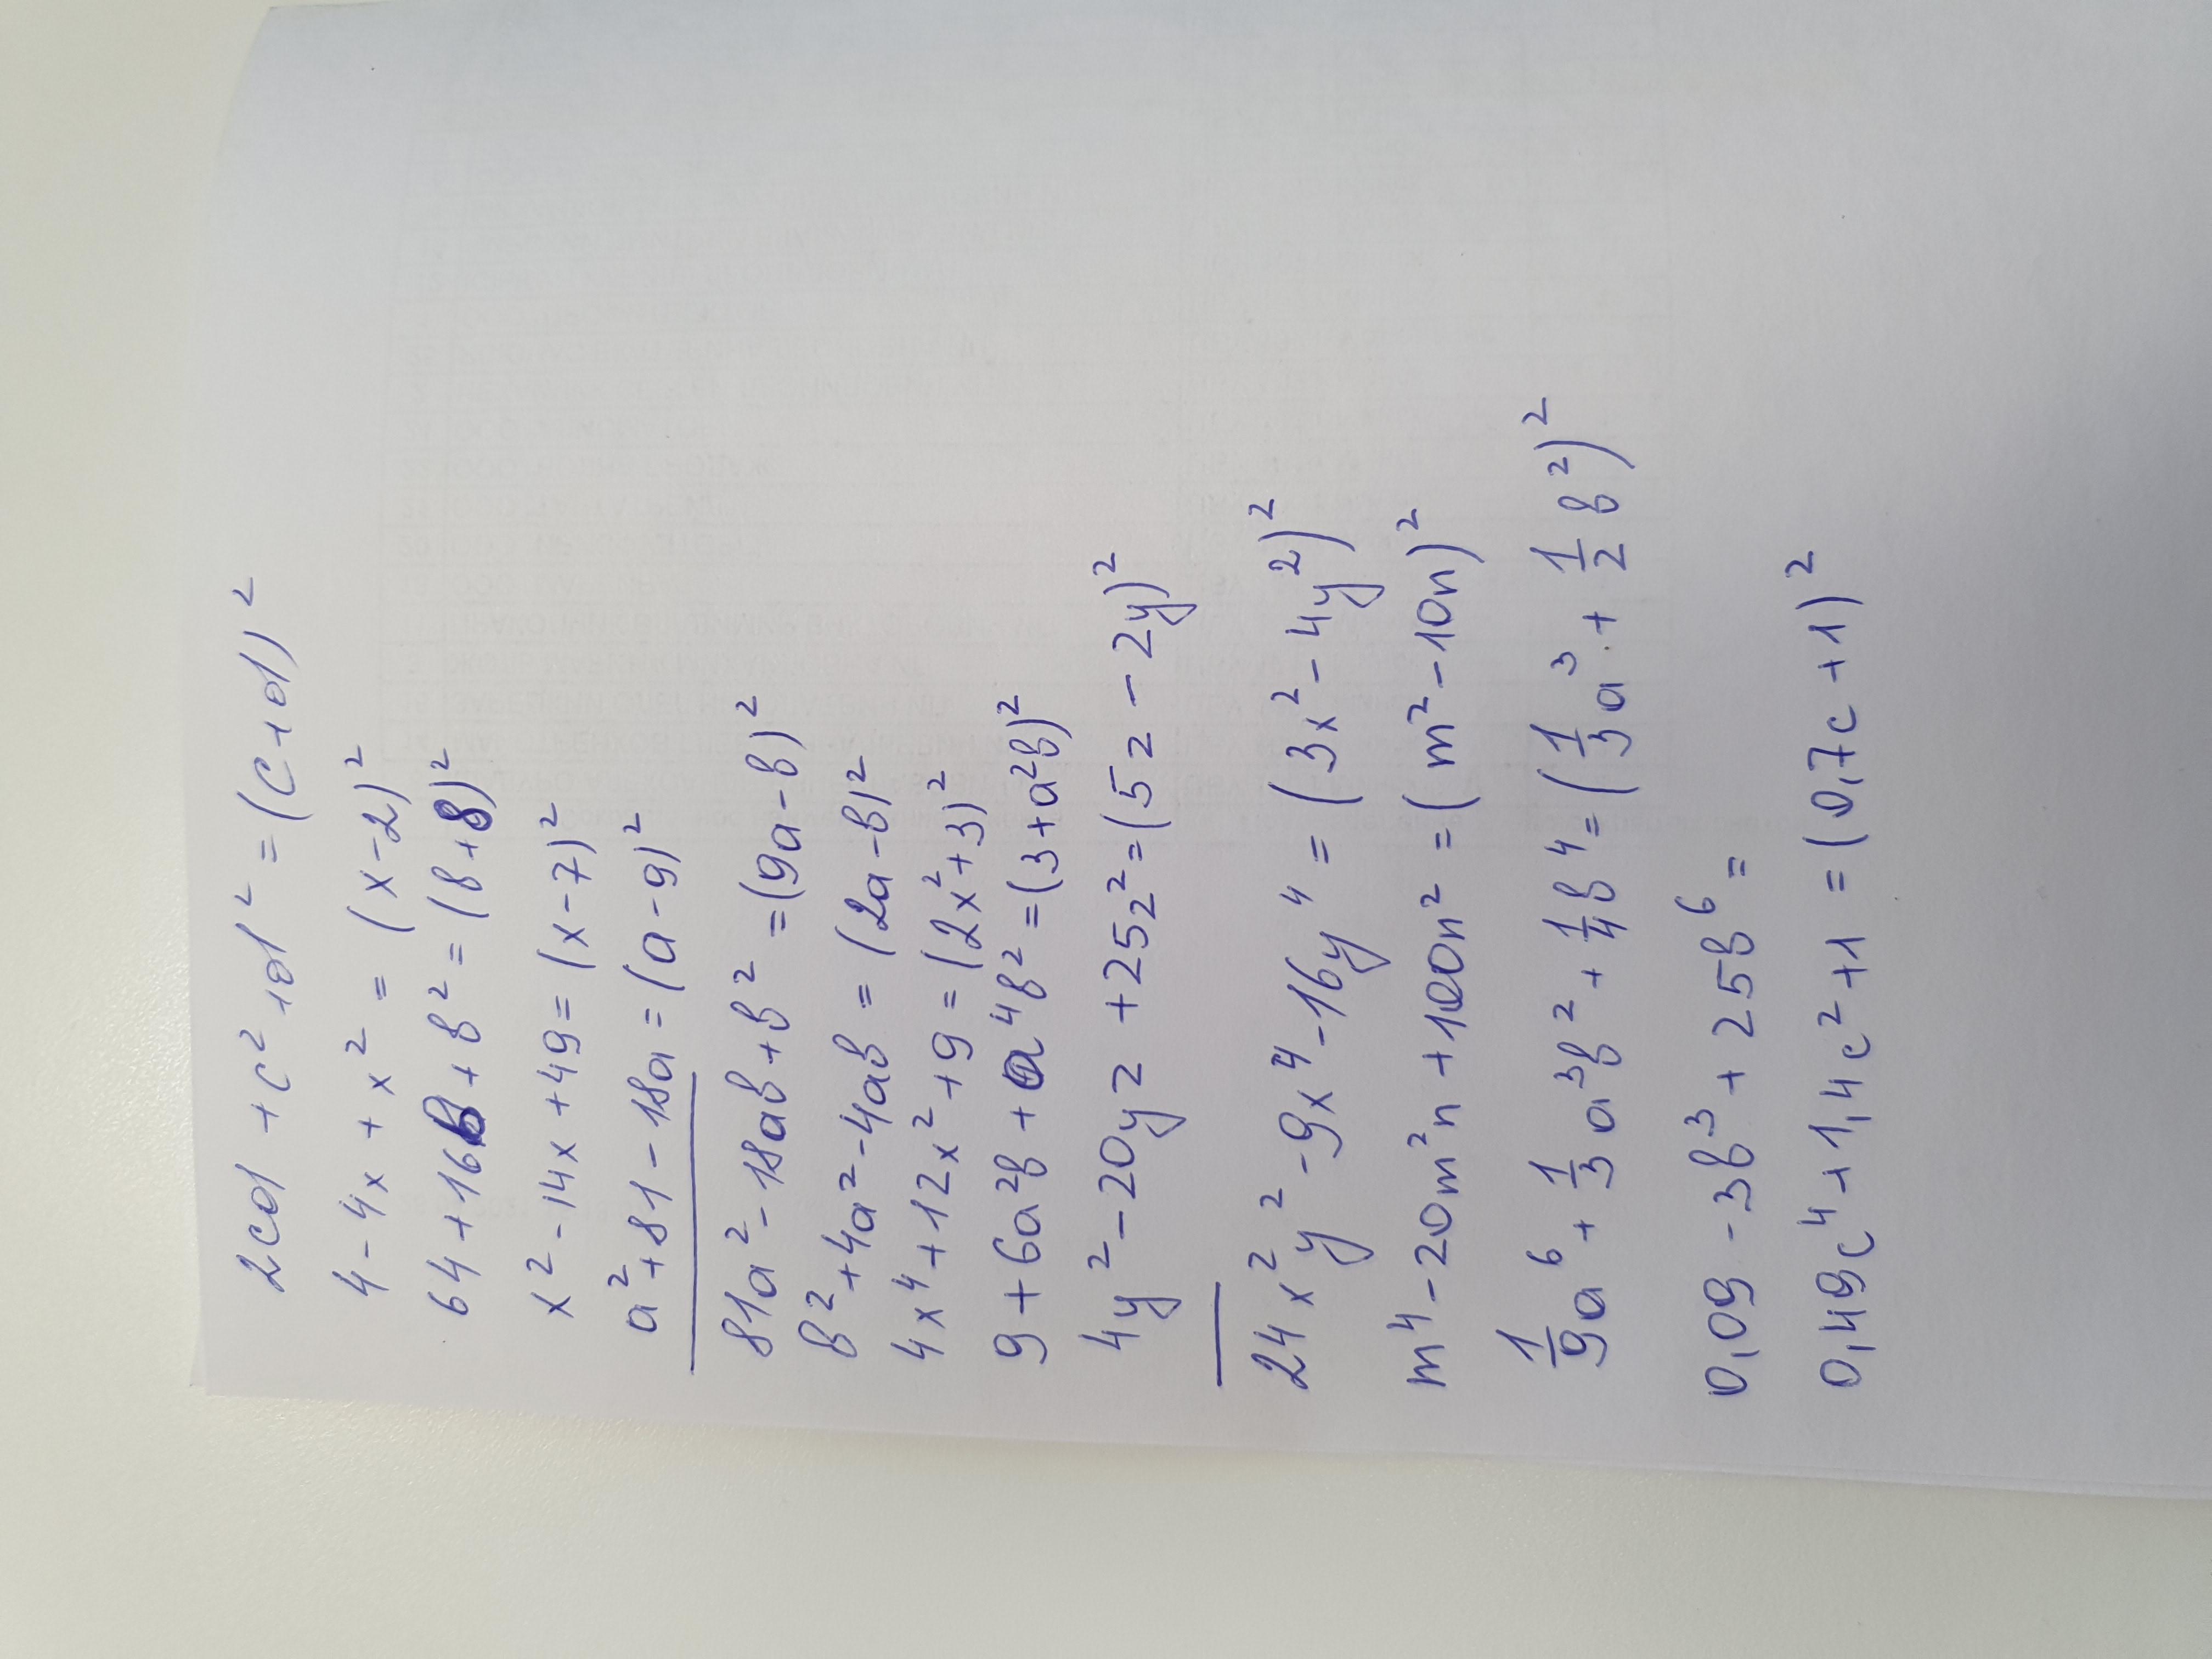 2cd + c² + d² = (c+d)²
4 - 4x + x² = (x-2)²
64 + 16в + в² = (в+8)²
x² - 14x + 49 = (x-7)²
a² + 81 - 18a = (a-9)²
81a² - 18aв + в² = (9a-в)²
в² + 4a² - 4aв = (2a-в)²
4x⁴ + 12x² + 9 = (2x²+3)²
9 + 6a²в + a⁴в² = (3+a²в)²
4y² - 20yz + 25z² = (5z - 2y)²
24x²y² - 9x⁴ - 16y⁴ = (3x² - 4y²)²
m⁴ - 20m²n + 100n² = (m² - 10n)²
1/9a⁶ + 1/3a³в² + 1/4в⁴ = (1/3a³ + 1/2в²)²
0,09 - 3в³ + 25в⁶ =
0,49c⁴ + 1,4c² + 1 = (0,7c + 1)²